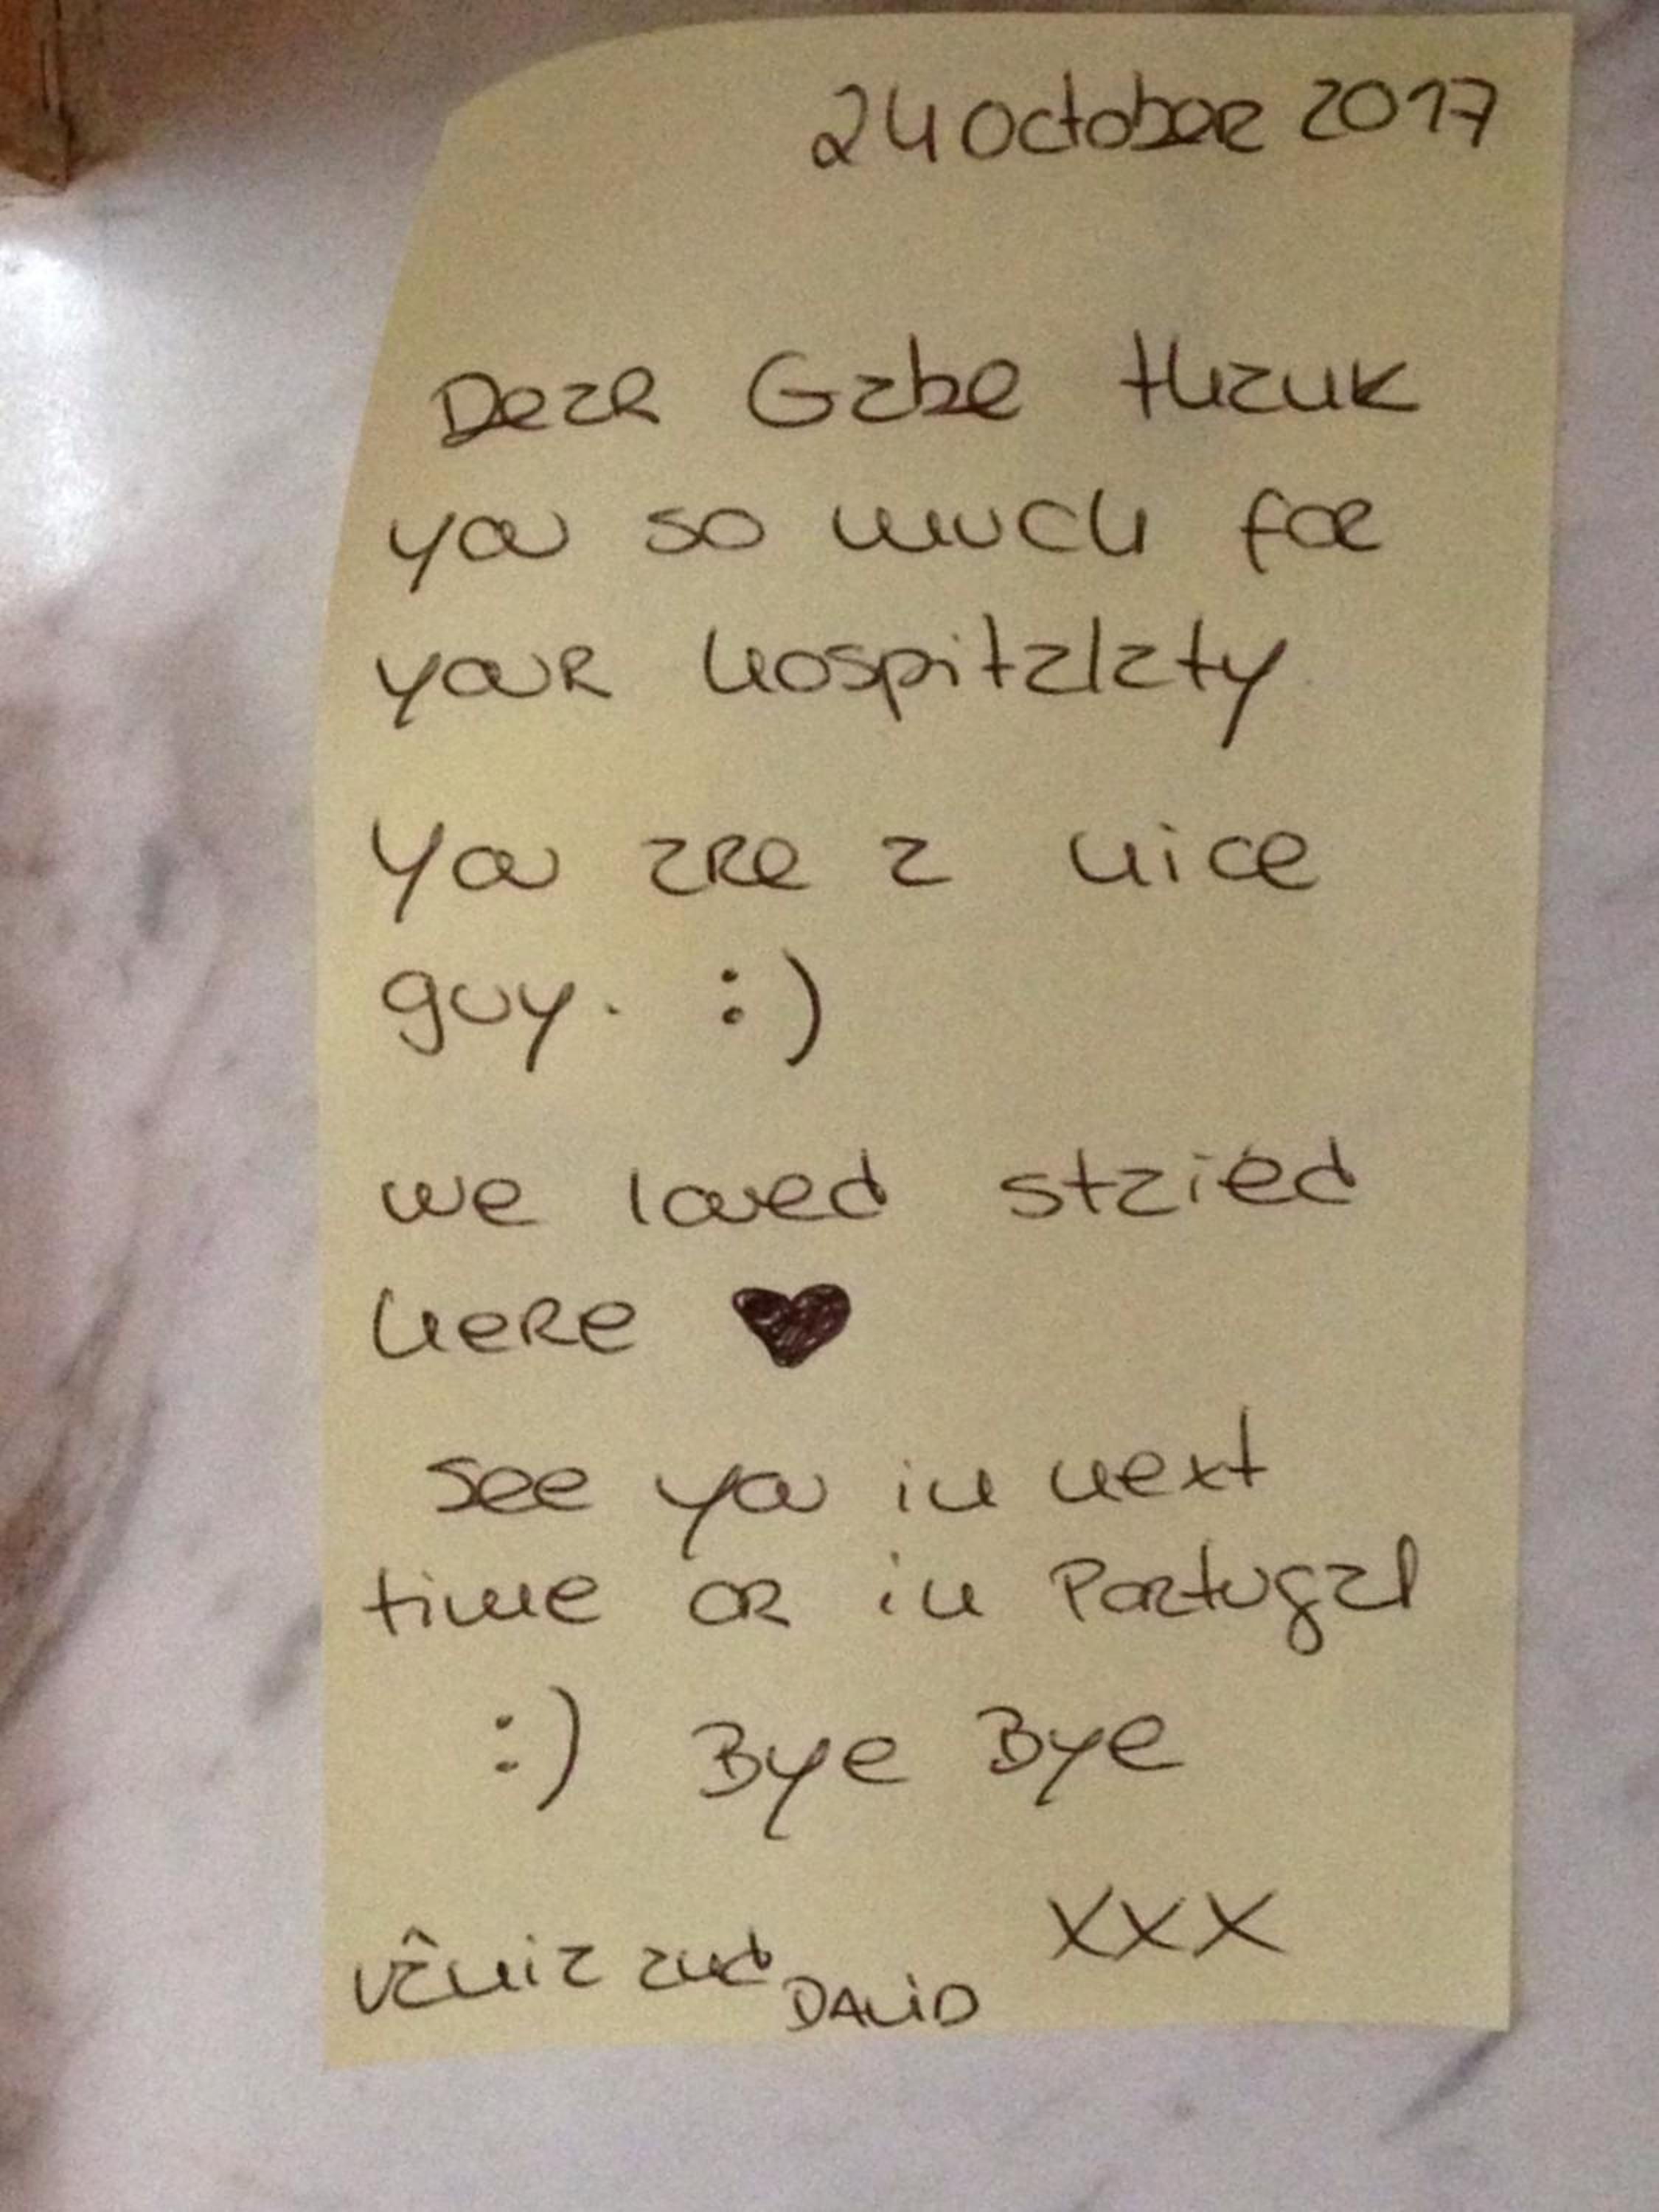 24 October 2017
Dear Gabe thank
you so much for
your hospitalaty
You are a nice
guy. :)
we loved staied
here ♥
see you in next
time or in Portugal
:) Bye Bye
xxx
Vânia and DAViD